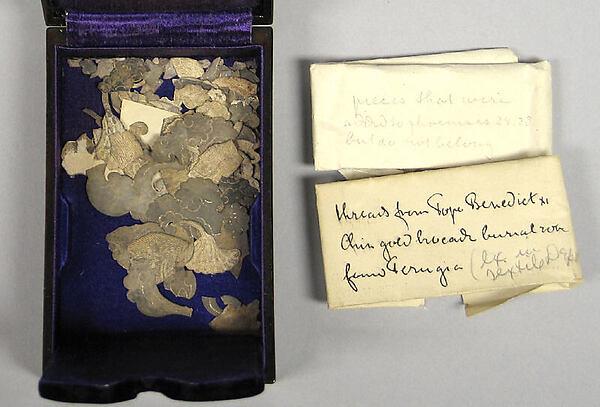 pieces that were
added to phoenixes 24.28
but do not belong
threads from Pope Benedict XI
Chin gold brocade burial robe
from Perugia (Ex in
Textile Dept